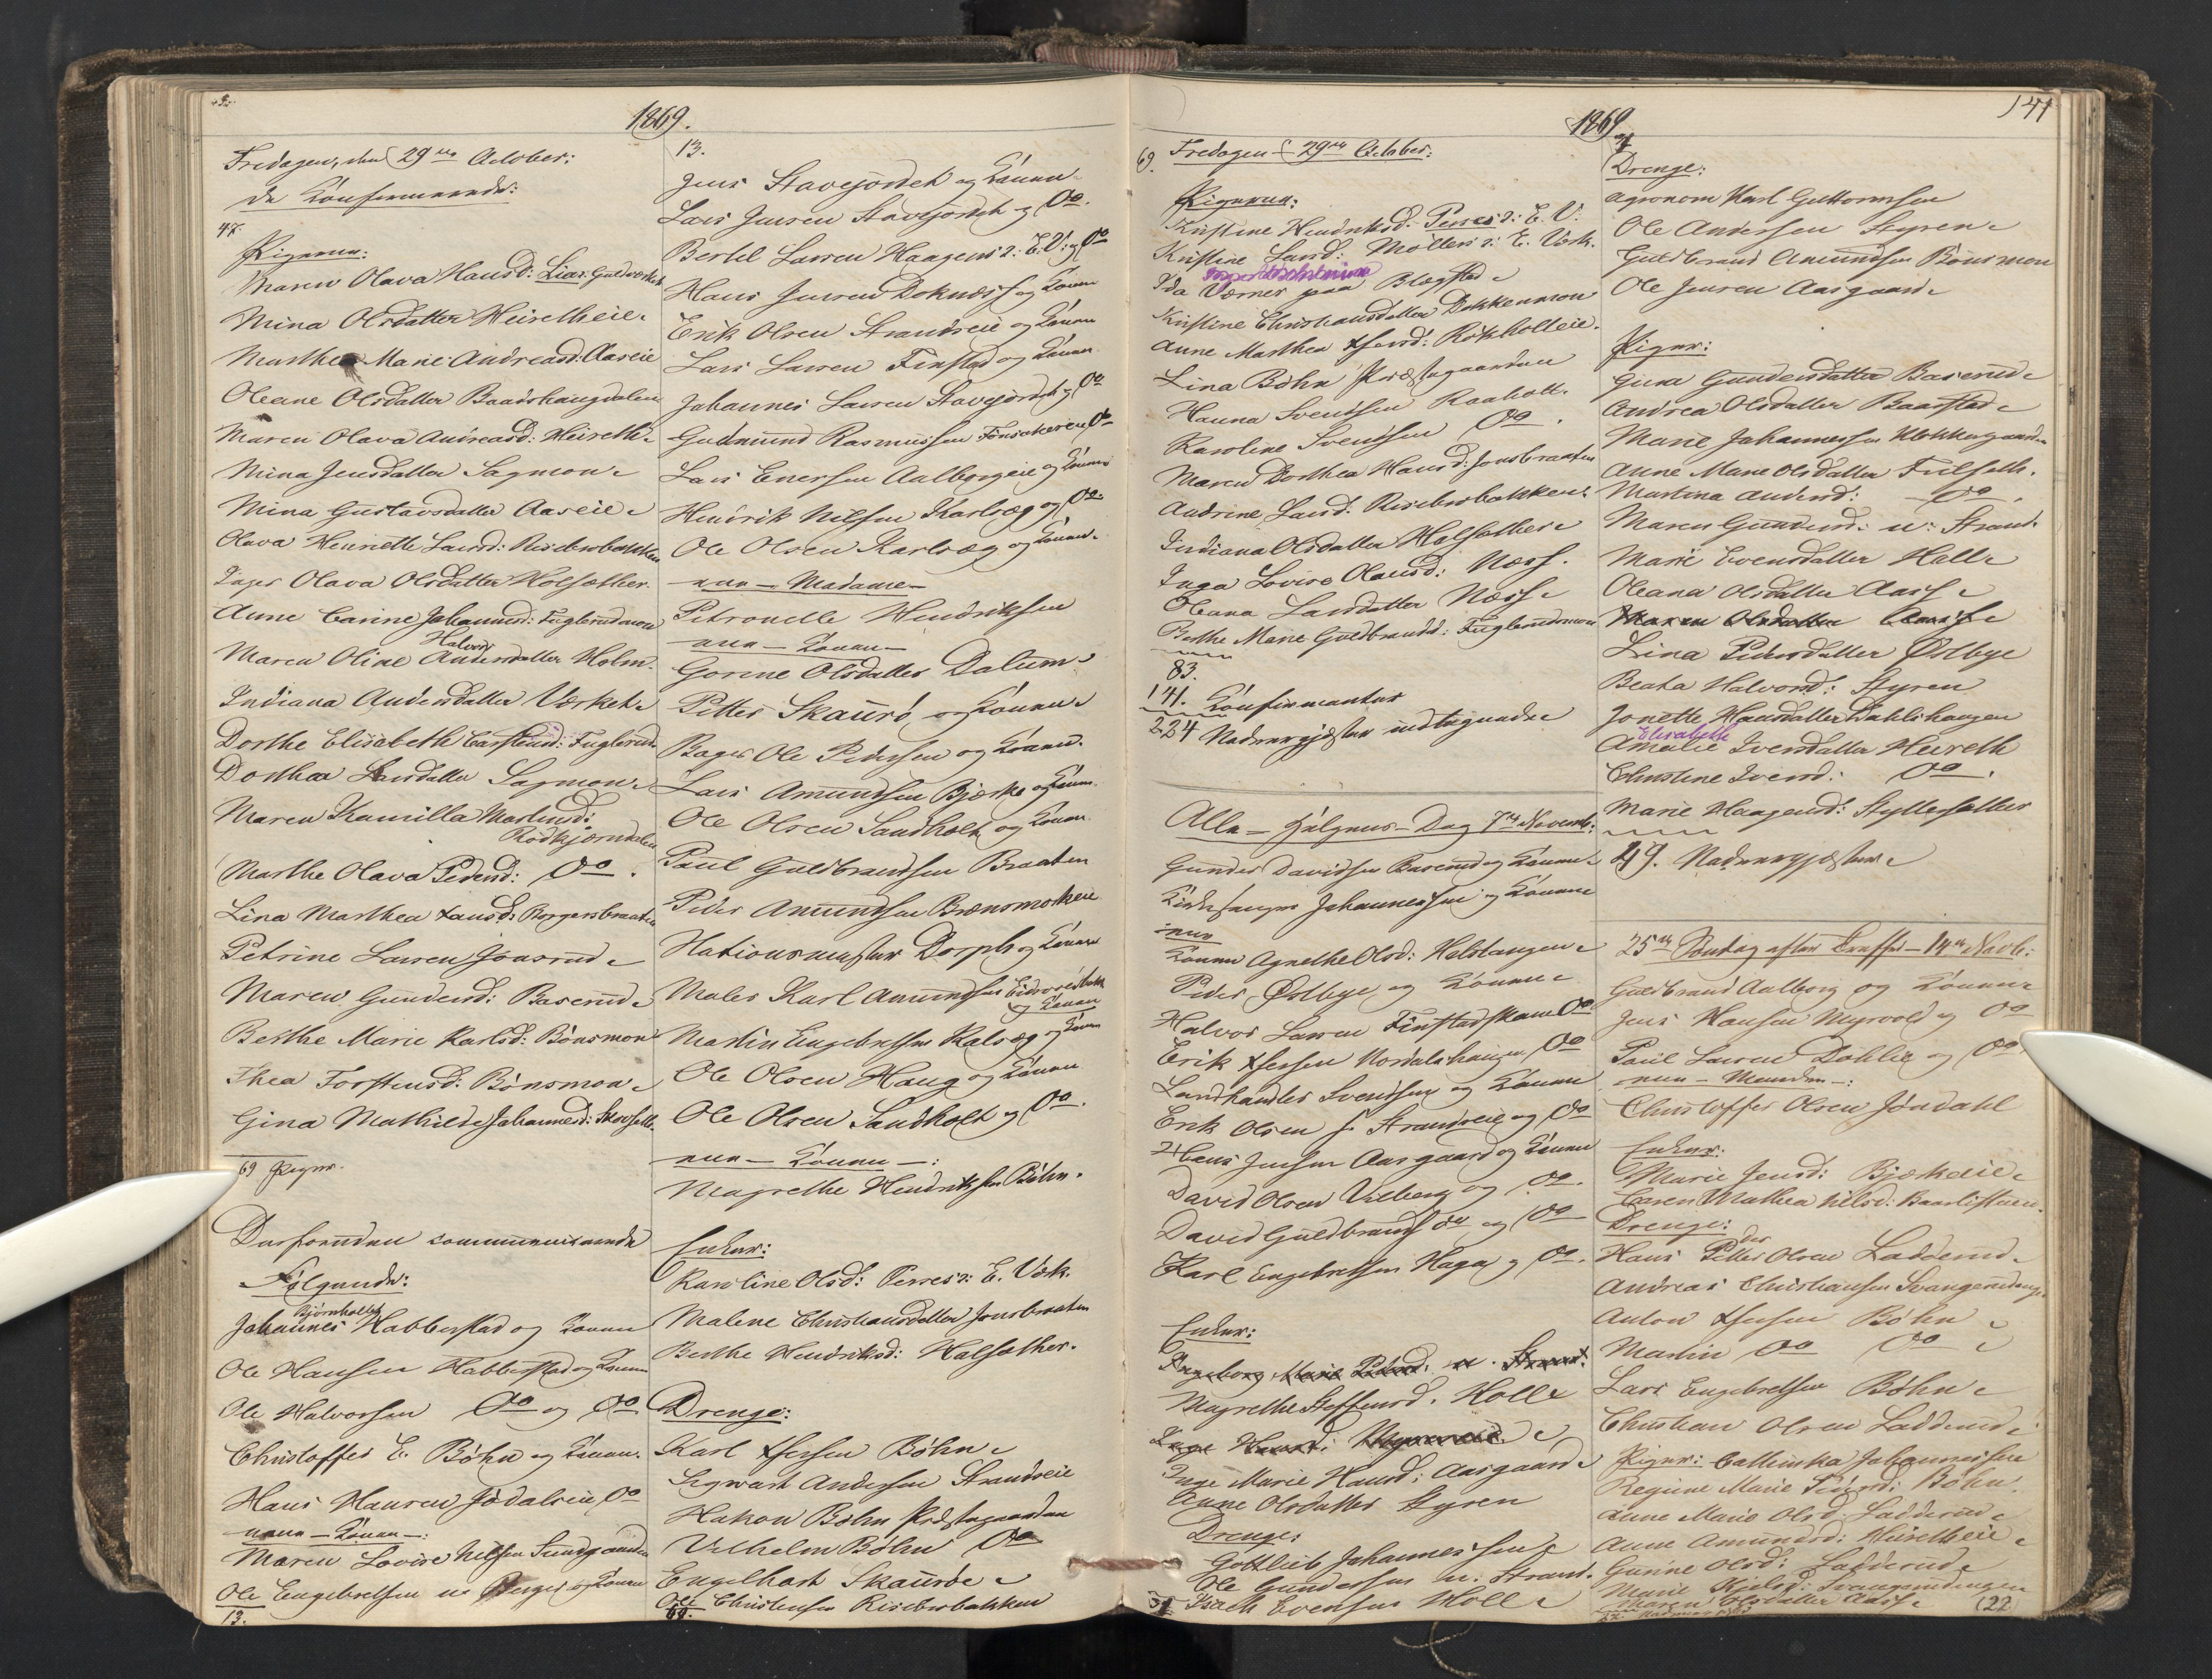 1869.
Fredagen, den 29de October:
de Konfirmerede:
47.
Pigerne:
Maren Olava Hansd: Lier, Guldverket
Mina Olsdatter Heireth eie
Marthea Marie Andreasd: Aaseie
Oleane Olsdatter Baadshaugdalen
Maren Olava Andreasd: Heireth
Mina Jensdatter Sagmoen
Mina Gustavsdatter Aaseie
Olava Henriette Larsd: Risebrobakken
Inger Olava Olsdatter Holsæther
Anne Carine Johannesd: Fuglerudmoen
Halvors
Maren Oline Andersdatter Holm.
Indiana Andersdatter Værket
Dorthe Elisabeth Carstensd: Fuglerud
Dorthea Larsdatter Sagmoen
Maren Kamilla Martinsd:
Rødkjærndalen
Marthe Olava Pedersd: Do.
Lina Marthea Hansd: Borgersbraaten
Petrine Larsen Jonsrud
Maren Gundersd: Baserud
Berthe Marie Karlsd: Bønsmoen
Thea Torstensd: Bønsmoen
Gina Mathilde Johannesd: Skovseth
69 Piger.
Desforuden communicerede
Følgende:
Bjørnholtet
Johannes Habberstad og Konen
Ole Hansen Habberstad og Konen
Ole Halvorsen Do og Do
Christoffer E. Bøhn og Konen.
Hans Hansen Jødalseie Do
mere - Konen -:
Maren Lovise Nilsen Sundgaarden
Ole Engebretsen og Konen
13.
13.
Jens Stavejordet og Konen
Lars Jensen Stavejordet og Do.
Bertel Larsen Haagens : E. V: og Do
Hans Jensen Doknæss og Konen
Erik Olsen Strandseie og Konen
Lars Larsen Finstad og Konen
Johannes Larsen Stavejordet og Do
Gudmund Rasmussen Tønsakeren Do
Lars Enersen Aalborgeie og Konen
Hendrik Nilsen Karlsæg og Do.
Ole Olsen Karlsæg og Konen.
mere - Madame -
Petronelle Hendriksen
mere - Konen -
Gorine Olsdatter Dalum
Petter Skaurø og Konen
Bager Ole Pedersen og Konen.
Lars Amundsen Bjærke og Konen.
Ole Olsen Sandholt og Konen
Paul Guldbrandsen Braaten
Peder Amundsen Brensmorken
Stationsmester Dorph og Konen
Maler Karl Amundsen Eidsvoldbak
og Konen
Martin Engebretsen Kalsæg og Konen
Ole Olsen Haug og Konen
Ole Olsen Sandholt og Do.
mere - Konen -:
Magrethe Hendriksen Bøhn.
Enker:
Karoline Olsd: Perres : E. Værk.
Malene Christiansdatter Jonsbraaten
Berthe Hendriksd: Holsæther.
Drenge:
Karl Hersen Bøhn
Segvart Andersen Strandseie
Hakon Bøhn Præstegaarden
Vilhelm Bøhn Do
Engelhart Skaurøe
Ole Christensen Risebrobakken
60.
1869
141
69.
Fredagen d 29de October:
Pigerne:
Kristine Hendriksd: Perres : E. V.
Kristine Larsd: Møllers : E. Værk.
Ida Værner paa Blægstad
Kristine Christiansdatter Dokkenmoen
Anne Marthea Hersd: Rokholteie.
Lina Bøhn Præstegaarden
Hanna Svendsen Raaholt.
Karoline Svendsen Do.
Maren Dorthea Hansd: Jonsbraaten
Andrine Larsd: Risebrobakken
Indiana Olsdatter Holsæther
Inga Lovise Olausd: Næss.
Oleana Larsdatter Næss
Berthe Marie Guldbrandsd: Fuglerudmoen
83.
141. Konfirmanter
224 Nadvergjæster indtegnede
Alle - Helgens - Dag 7de Novemb:
Gunder Davidsen Baserud og Konen
Kirkesanger Johannessen og Konen
mere
Konen Agnethe Olsd: Holstangen
Peder Østbye og Konen
Halvor Larsen Finstadskam Do
Erik Hersen Nordalshaugen Do
Landhandler Svendsen og Konen
Erik Olsen Strandseie og Do
Hans Jensen Aasgaard og Konen
David Olsen Vilberg og Do.
David Guldbrands og Do
Karl Engebretsen Haga og Do.
Enker:
Ingeborg Marie Pedersd: Strand.
Magrethe Steffensd. Holl
Inge Marie Hansd: Aasgaard
Anne Olsdatter Styren
Drenge:
Gottlieb Johannessen
Ole Gundersen Strand.
Isach Evensen Holl
31
31
Drenge:
Agronom Karl Guttormsen
Ole Andersen Styren
Guldbrand Amundsen Bønsmoen
Ole Jensen Aasgaard
Piger:
Gina Gundersdatter Baserud
Andrea Olsdatter Baarstad
Marie Johannessen Klokkergaarden
Anne Marie Olsdatter Fulseth.
Martina Andersd: Do.
Maren Gundersd: Strand.
Marie Evensdatter Holl
Oleana Olsdatter Aass
Maren Olsdatter Aass
Lina Pedersdatter Østbye
Beata Halvorsd: Styren
Jonette Hansdatter Dahlshaugen
Elisabeth
Amalie Iversdatter Heireth
Christine Iversd: Do.
Marie Haagensd: Styllesæther
49. Nadvergjæster
25de Søndag efter Treff: - 14de Novb:
Guldbrand Aalborg og Konen
Jens Hansen Myrvold og Do
Paul Larsen Døhlie og Do
mere - Manden -:
Christoffer Olsen Jøndahl
Enker:
Marie Jensd: Bjærkeeie
Caren Mathea Nilsd: Baarlistuen.
Drenge:
Hans Petter Olsen Ladderud
Andreas Christiansen Svangerudengen
Anton Hersen Bøhn
Martin Do Do
Lars Engebretsen Bøhn
Christian Olsen Ladderud
Piger: Cathinka Johannessen
Regine Marie Pedersd: Bøhn.
Anne Marie Olsd. Ladderud
Anne Amundsd: Heiretheie
Gunine Olsd: Ladderud
Marie Kjelsd: Svangerudengen
Maren Olsdatter Aass
(22)